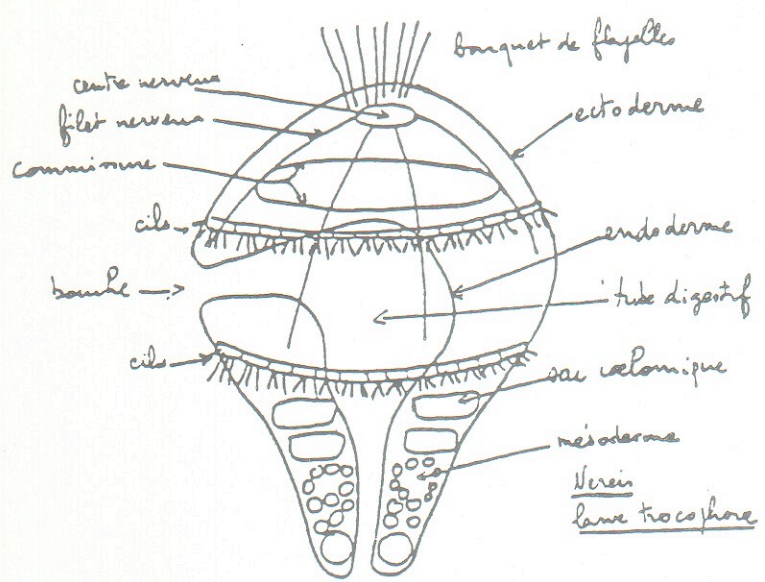 bouquet de flagelles
centre nerveux
ectoderme
filet nerveux
commissure
cils
endoderme
bouche
tube digestif
cils
sac cœlomique
mésoderme
Nereis
larve trocophore